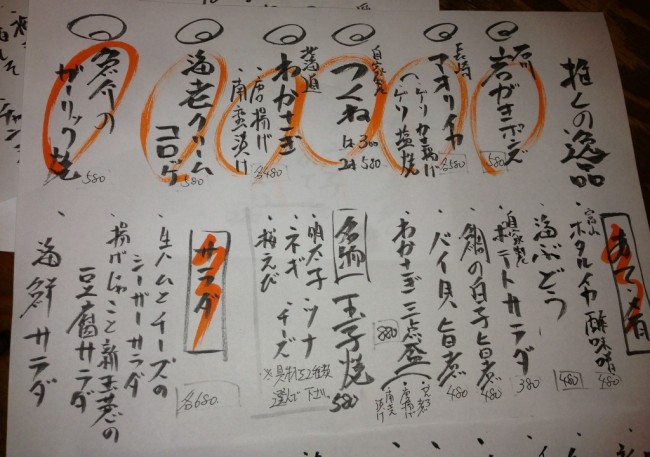 推しの逸品
石川
岩がきポン酢
580
長崎
アオリイカ
(ゲソ唐揚げ
(ゲソ塩焼
各580
自家製
つくね
1本 300
2本 580
北海道
わかさぎ
・唐揚げ
・南蛮漬け
各480
海老クリーム
コロッケ
580
倉介の
ガーリック
580
あて肴
・富山
ホタルイカ酢味噌
480
・海ぶどう
480
・自家製
ポテトサラダ
380
・鯛の白子旨煮
480
・バイ貝旨煮
480
・わかさぎ三点盛
・唐揚げ
880
名物
玉子焼
580
・明太子・ツナ
・ネギ・チーズ
・桜えび
※具材を2種類
選んで下さい
サラダ
各680
・生ハムとチーズの
シーザーサラダ
・揚げじゃこと新玉葱の
豆腐サラダ
・海鮮サラダ